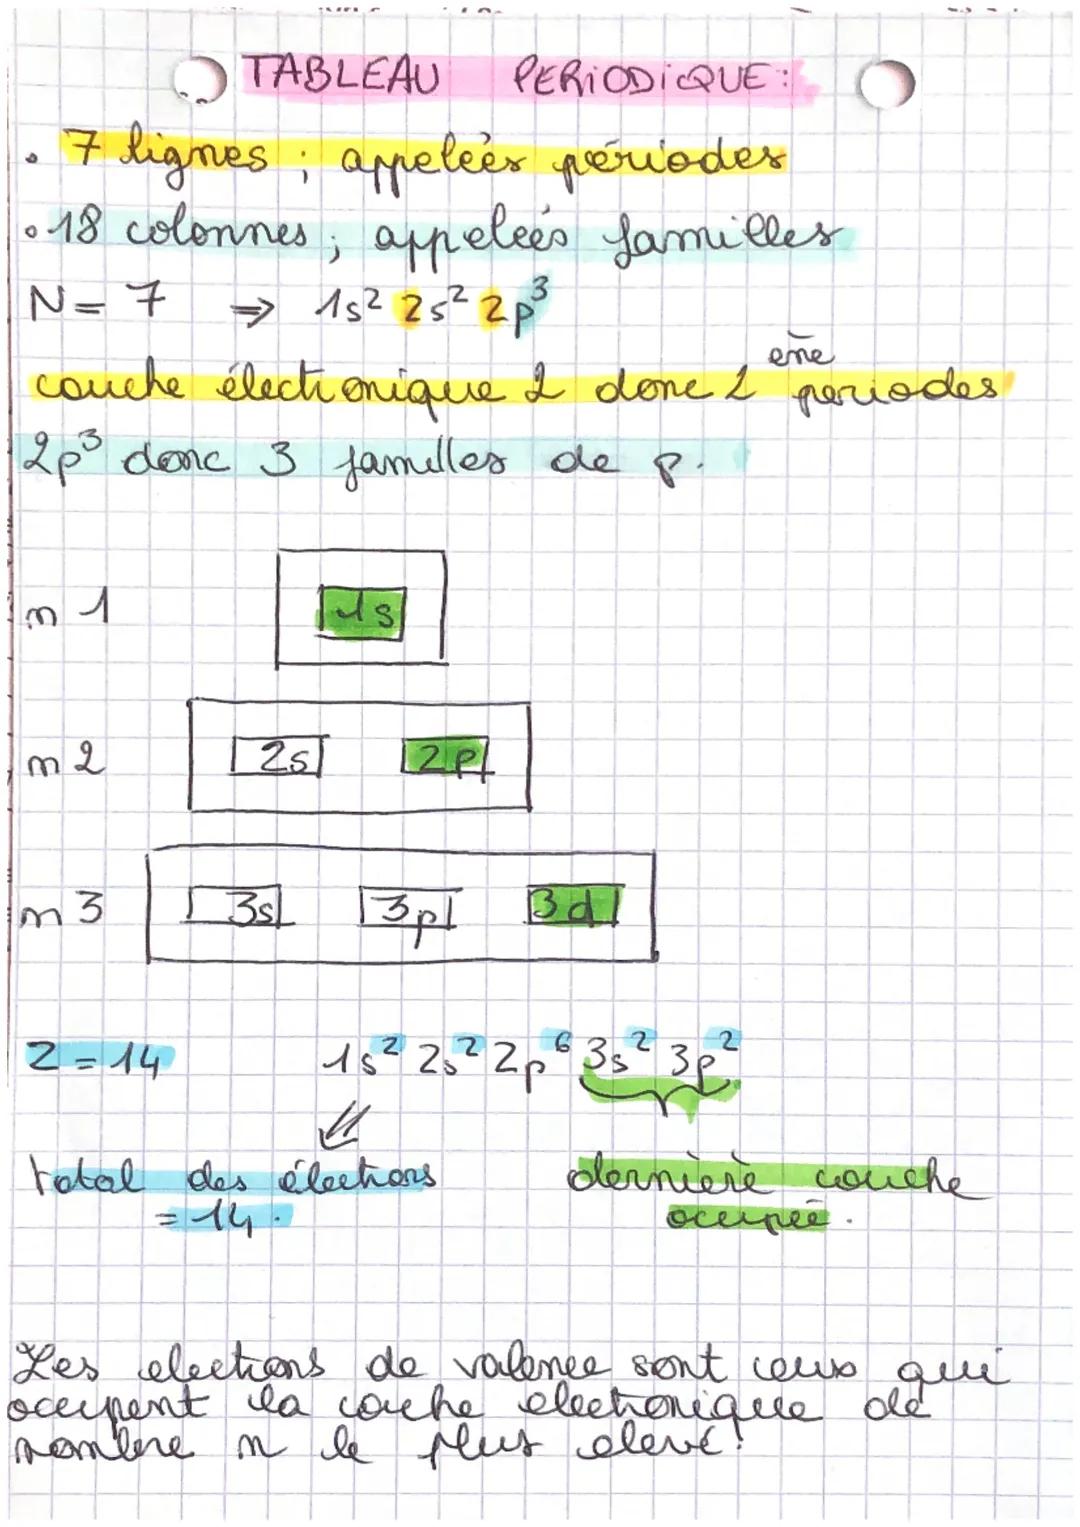 TABLEAU PERIODIQUE:
• 7 lignes ; appelées périodes
• 18 colonnes ; appelées familles
N = 7 ⇒ 1s² 2s² 2p³
couche électronique 2 donc 2 ème periodes
2p³ donc 3 familles de p.
n 1 1s
n 2 2s 2p
n 3 3s 3p 3d
Z = 14 1s² 2s² 2p⁶ 3s² 3p²
total des électrons dernière couche
= 14. occupée.
Les electrons de valence sont ceux qui
occupent la couche electronique de
nombre n le plus elevé!